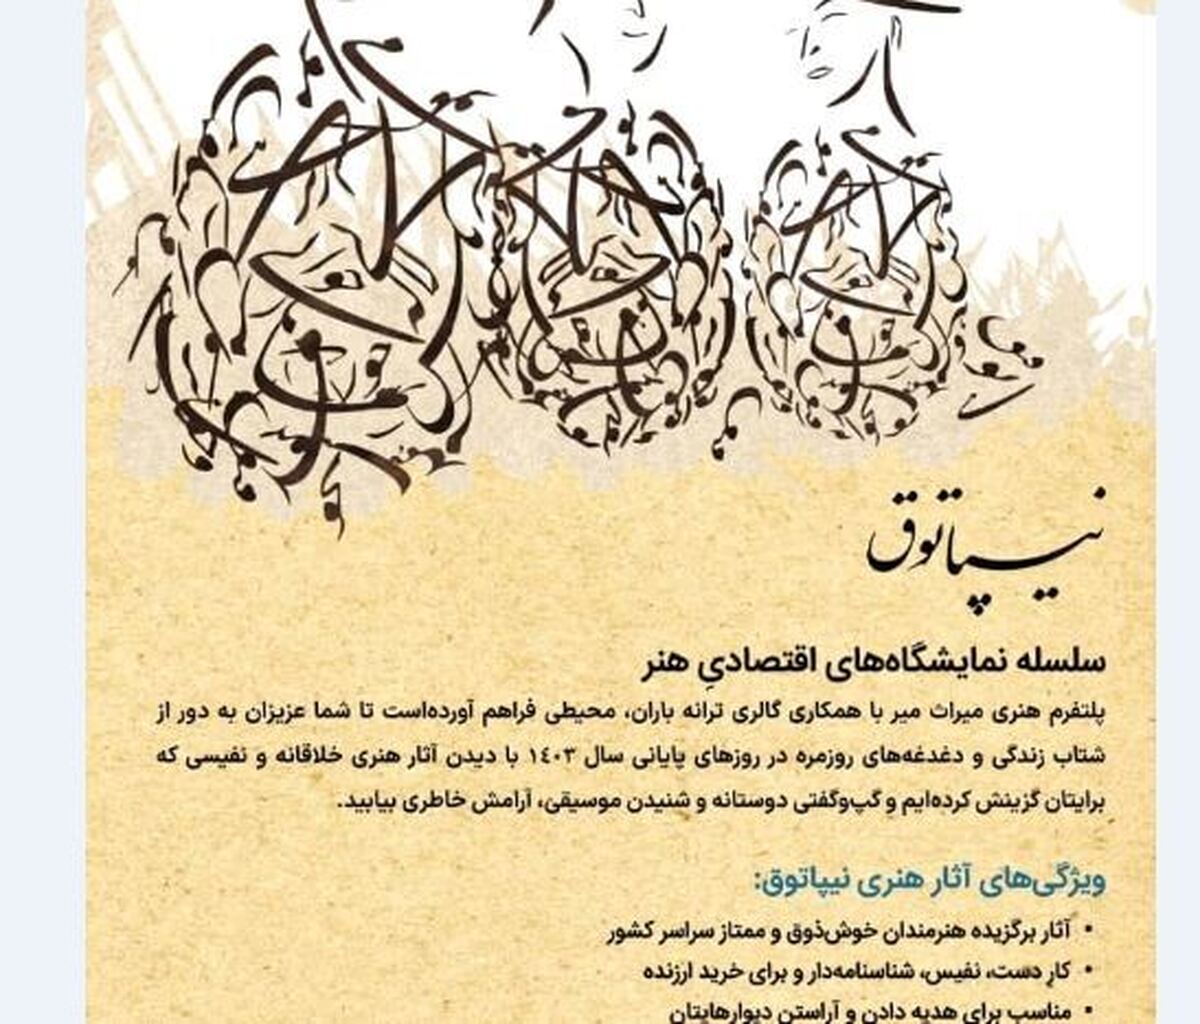 نیپاتوق
سلسله نمایشگاه‌های اقتصادیِ هنر
پلتفرم هنری میراث میر با همکاری گالری ترانه باران، محیطی فراهم آورده‌است تا شما عزیزان به دور از
شتاب زندگی و دغدغه‌های روزمره در روزهای پایانی سال ۱٤۰۳ با دیدن آثار هنری خلاقانه و نفیسی که
برایتان گزینش کرده‌ایم و گپ‌وگفتی دوستانه و شنیدن موسیقی، آرامش خاطری بیابید.
ویژگی‌های آثار هنری نیپاتوق:
• آثار برگزیده هنرمندان خوش‌ذوق و ممتاز سراسر کشور
• کارِ دست، نفیس، شناسنامه‌دار و برای خرید ارزنده
• مناسب برای هدیه دادن و آراستن دیوارهایتان